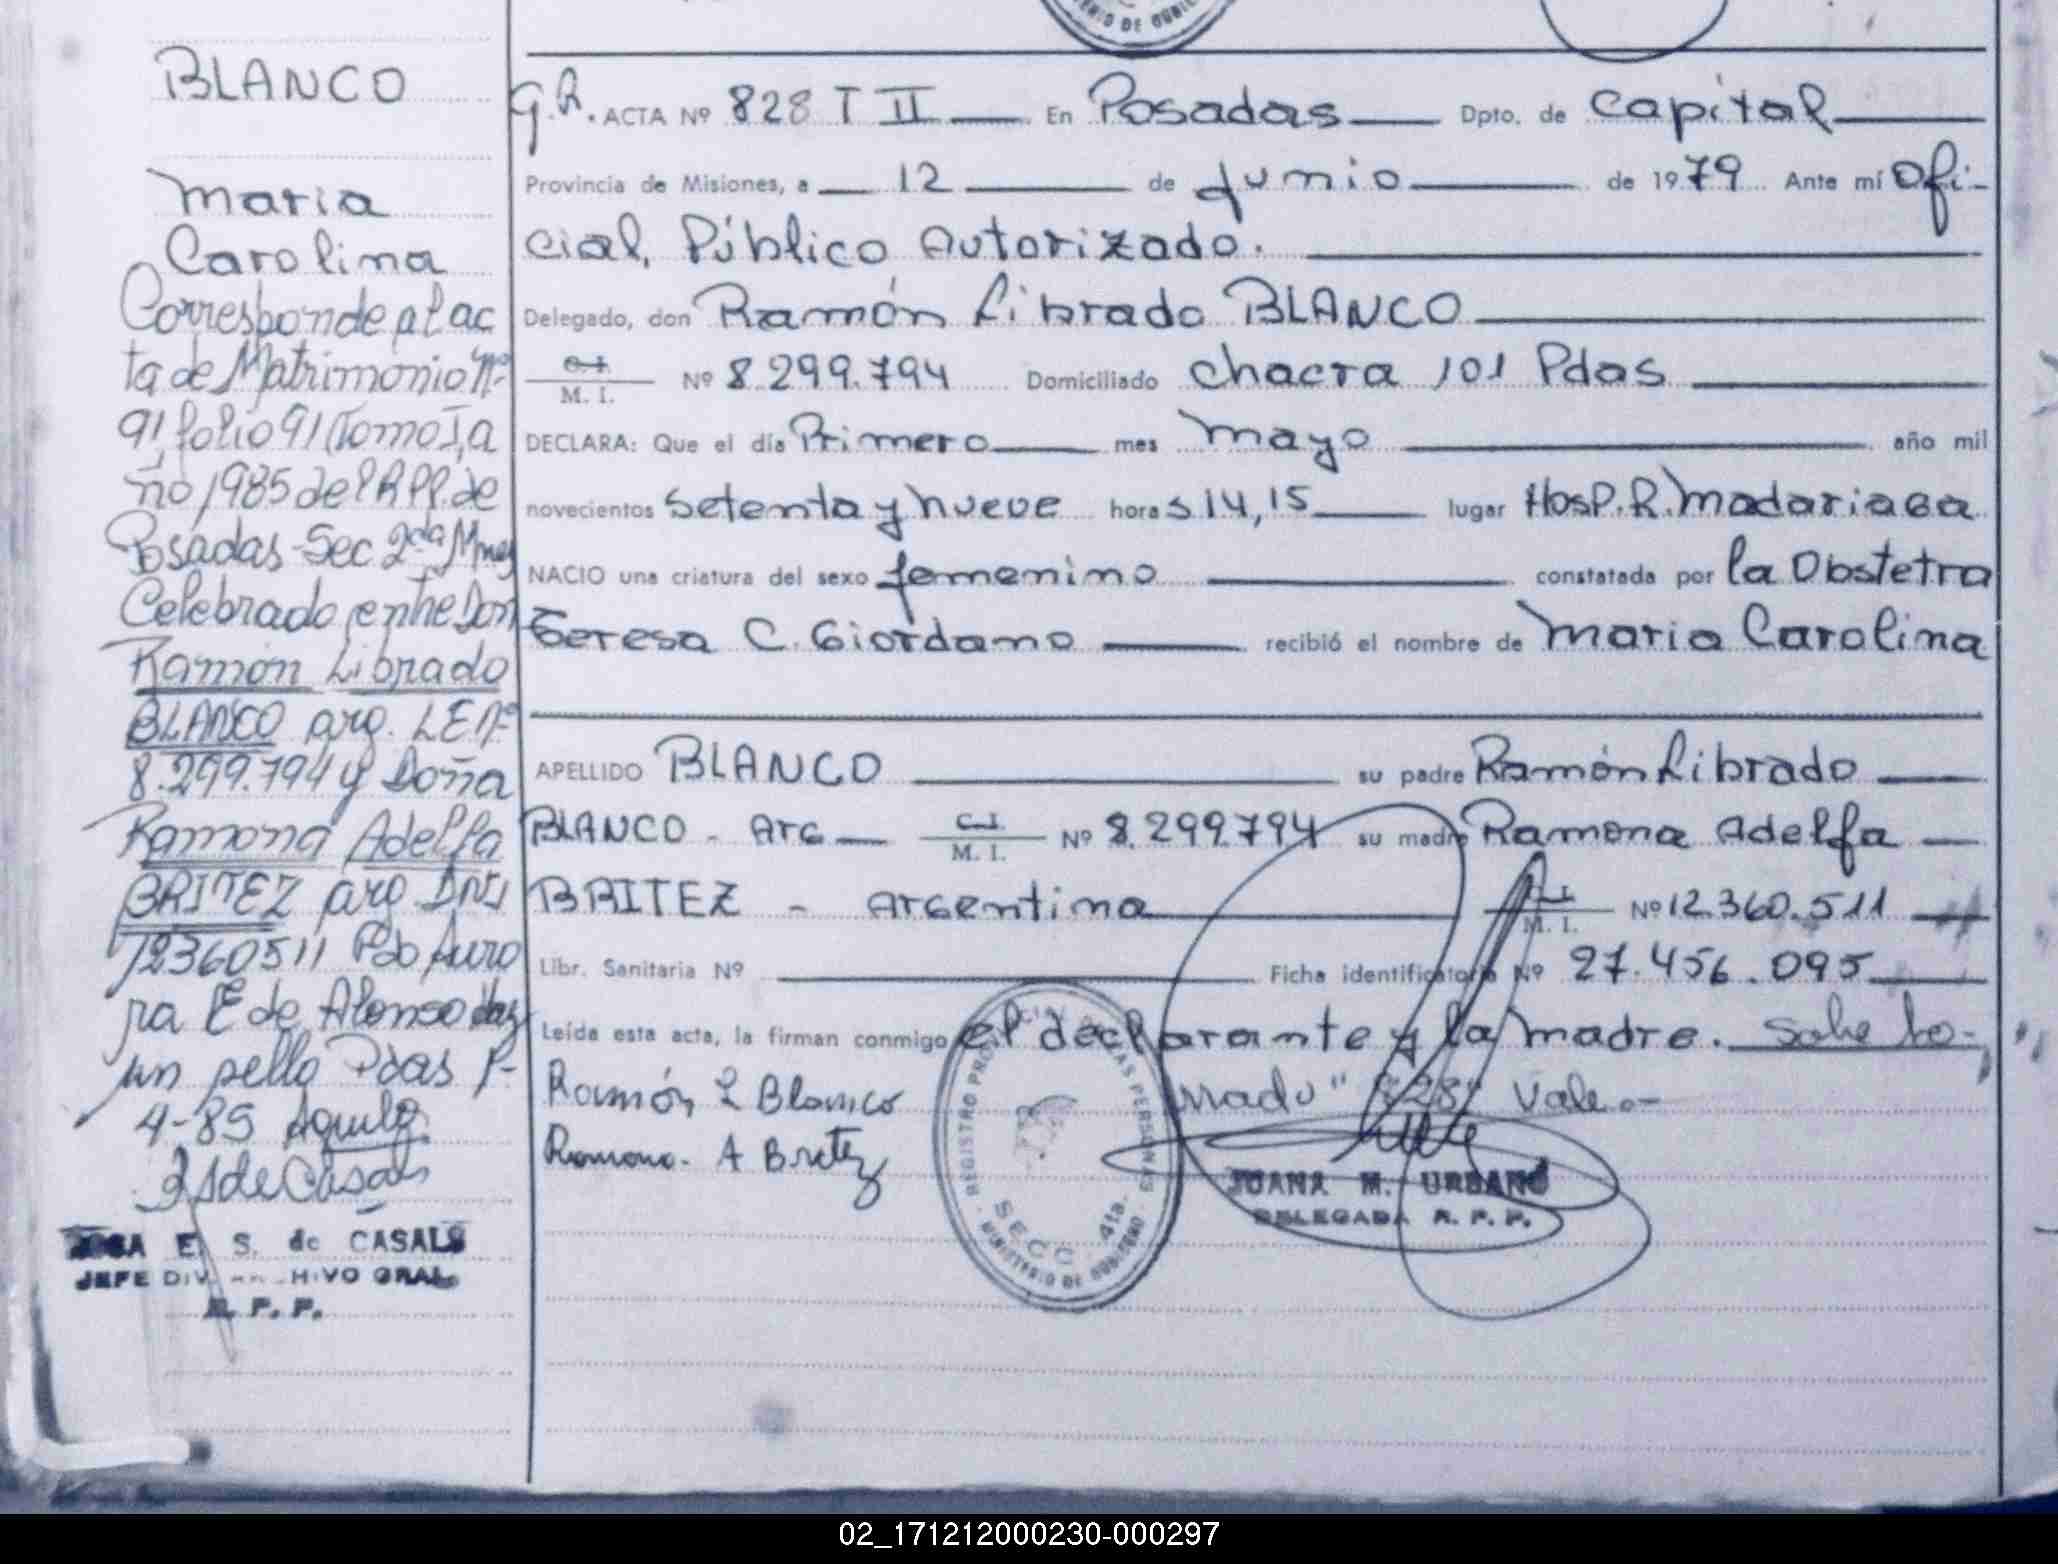 BLANCO
Maria
Carolina
Corresponde al ac
ta de Matrimonio Nº
91 folio 91 Tomo I, a
ño 1985 del RPP. de
Posadas Sec 2da Mnes
Celebrado entre Don
Ramón Librado
BLANCO arg. LE Nº
8.299.794 y Doña
Ramona Adelfa
BRITEZ arg. DNI
12360511 Fdo Auro
ra E de Alonso hay
un sello Pdas
4-85
JEFE DIV. ARCHIVO GRAL.
R. P. P.
E. S. de CASALS
G.R. ACTA Nº 828 T II En Posadas Dpto. de Capital
Provincia de Misiones, a 12 de Junio de 1979 Ante mí Ofi-
cial, Público Autorizado.
Delegado, don Ramón Librado BLANCO
C.I. M. I. Nº 8.299.794 Domiciliado Chacra 101 Pdas
DECLARA: Que el día Primero mes Mayo año mil
novecientos setenta y nueve hora s 14,15 lugar Hosp. R. Madariaga
NACIO una criatura del sexo femenino constatada por la Obstetra
Teresa C. Giordano recibió el nombre de Maria Carolina
APELLIDO BLANCO su padre Ramón Librado
BLANCO - Arg C.I. M. I. Nº 8.299.794 su madre Ramona Adelfa
BRITEZ - Argentina C.I. M. I. Nº 12.360.511
Libr. Sanitaria Nº Ficha identificatoria Nº 27.456.095
Leída esta acta, la firman conmigo el declarante y la madre. Sobre bo-
rrado "828" Vale.-
Ramón L Blanco
Ramona A Britez
REGISTRO PROVINCIAL DE LAS PERSONAS
SECC. 4ta.
MINISTERIO DE GOBIERNO
JUANA M. URBANO
DELEGADA R. P. P.
02_171212000230-000297